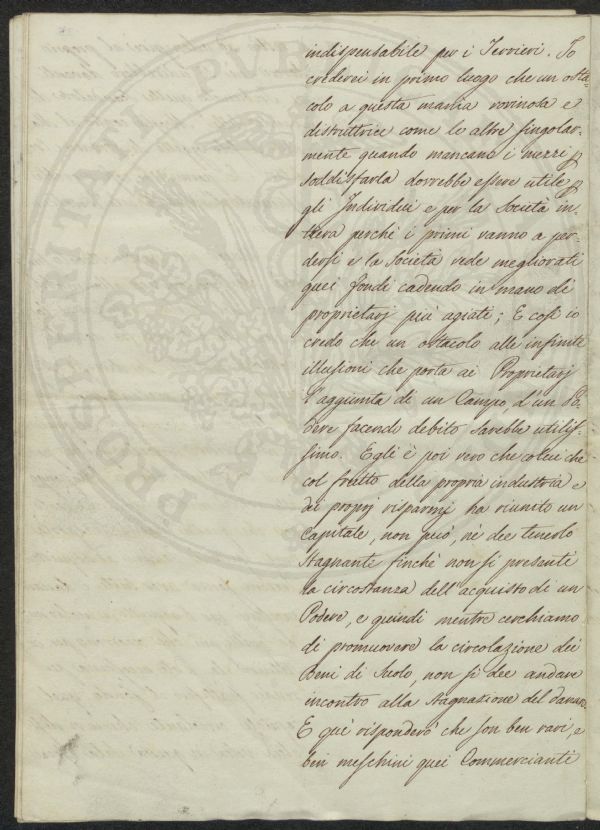 indispensabile per i Terrieri. Io
crederei in primo luogo che un osta-
colo a questa mania rovinosa e
distruttrice come le altre singolar-
mente quando mancano i mezzi p
soddisfarla dovrebbe essere utile p
gli Individui e per la Società in-
tiera perchè i primi vanno a per-
dersi e la Società vede megliorati
quei fondi cadendo in mano di
proprietarj più agiati; E così io
credo che un ostacolo alle infinite
illusioni che porta ai Proprietarj
l'aggiunta di un Campo, d'un Po-
dere facendo debito sarebbe utilis-
simo. Egli è poi vero che colui che
col frutto della propria industria e
dei proprj risparmj ha riunito un
Capitale, non può, nè dee tenerlo
stagnante finchè non si presenti
la circostanza dell'acquisto di un
Podere, e quindi mentre cerchiamo
di promuovere la circolazione dei
Beni di Suolo, non si dee andare
incontro alla stagnazione del danaro.
E quì risponderò che son ben rari, e
ben meschini quei Commercianti
PROSPERITATI PVB